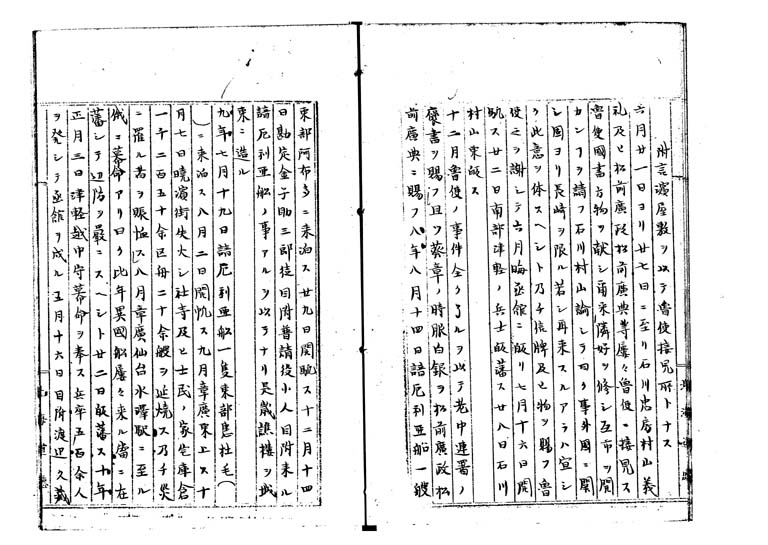 附言濱屋敷ヲ以テ魯使接見所トナス
六月廿一日ヨリ廿七日ニ至リ石川忠房村山義
礼及ヒ松前廣政松前廣典等屢々魯使ニ接見ス
魯使國書方物ヲ献シ甫来隣好ヲ修シ互市ヲ開
カンヿヲ請フ石川村山諭シテ曰ク事外國ニ関
シ固ヨリ長崎ヲ限ル若シ再来スルアラハ宜シ
ク此意ヲ体スヘシト乃チ信牌及ヒ物ヲ賜フ魯
使之ヲ謝シテ六月晦函館ニ皈リ七月十六日開
帆ス廿二日南部津軽ノ兵士皈藩ス廿八日石川
村山東皈ス
十二月魯使ノ事件全ク了ルヲ以テ老中連署ノ
褒書ヲ賜フ且ツ葵章ノ時服白銀ヲ松前廣政松
前廣典ニ賜フ八年八月十四日諳厄利亜船一艘
東部阿布多ニ来泊ス廿九日開帆ス十二月十四
日勘定金子助三郎徒目附普請役小人目附来ル
諳厄利亜船ノ事アルヲ以テナリ是歳譙楼ヲ城
東ニ造ル
九年七月十九日諳厄利亜船一隻東部恵杜毛(
)ニ来泊ス八月二日開帆ス九月章廣東上ス十
月七日暁濱街失火シ社寺及ヒ士民ノ家宅庫倉
一千二百五十余巨舟二十余艘ヲ延焼ス乃チ災
ニ罹ル者ヲ賑恤ス八月章廣仙台水澤駅ニ至ル
俄ニ幕命アリ曰ク此年異國船屢々来ル当ニ在
藩シテ辺防ヲ厳ニスヘシト廿二日皈藩ス十年
正月三日津軽越中守幕命ヲ奉ス兵卒五百余人
ヲ発シテ函館ヲ戍ル五月十六日目附渡辺久蔵